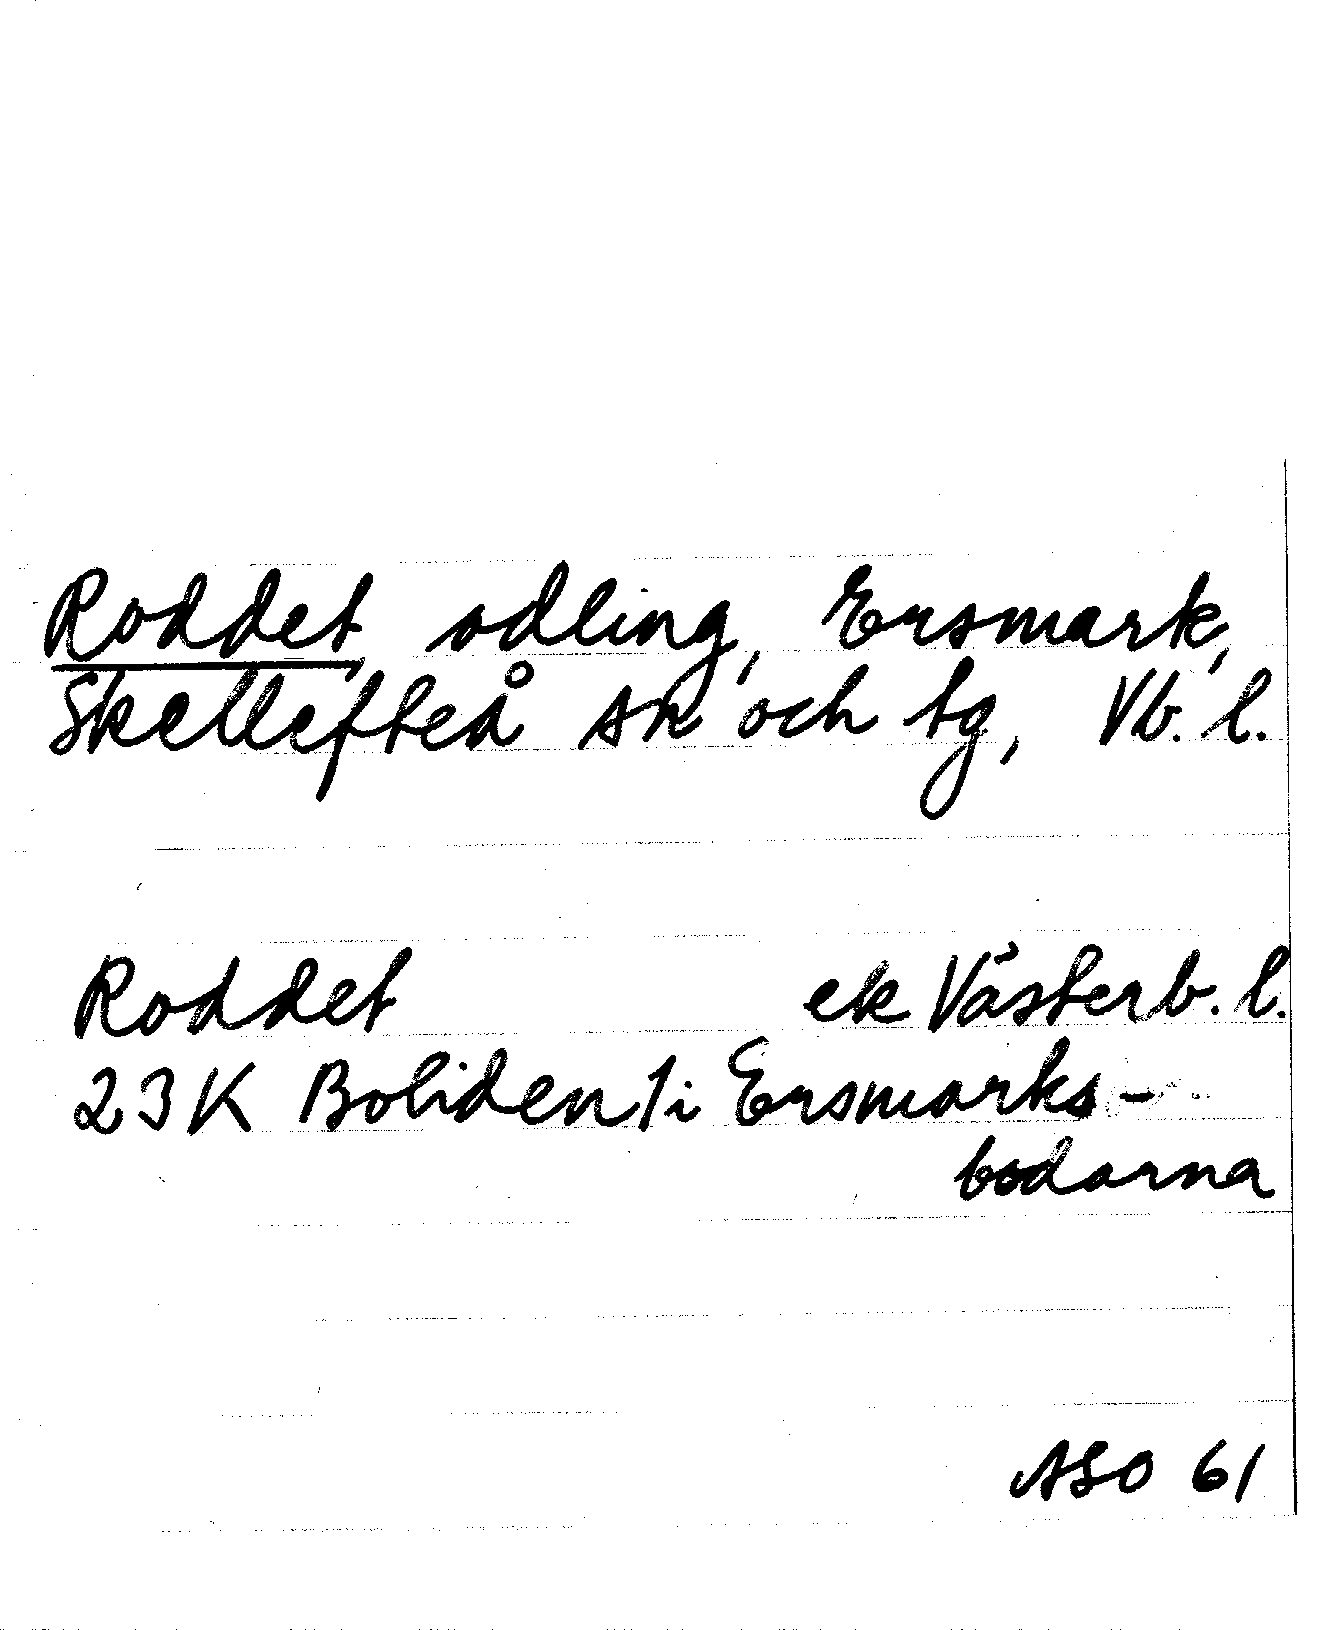 Roddet odling, Ersmark,
Skellefteå sn och tg, Vb. l.
Roddet ek Västerb. l.
23K Boliden/i Ersmarks-
bodarna
ASO 61